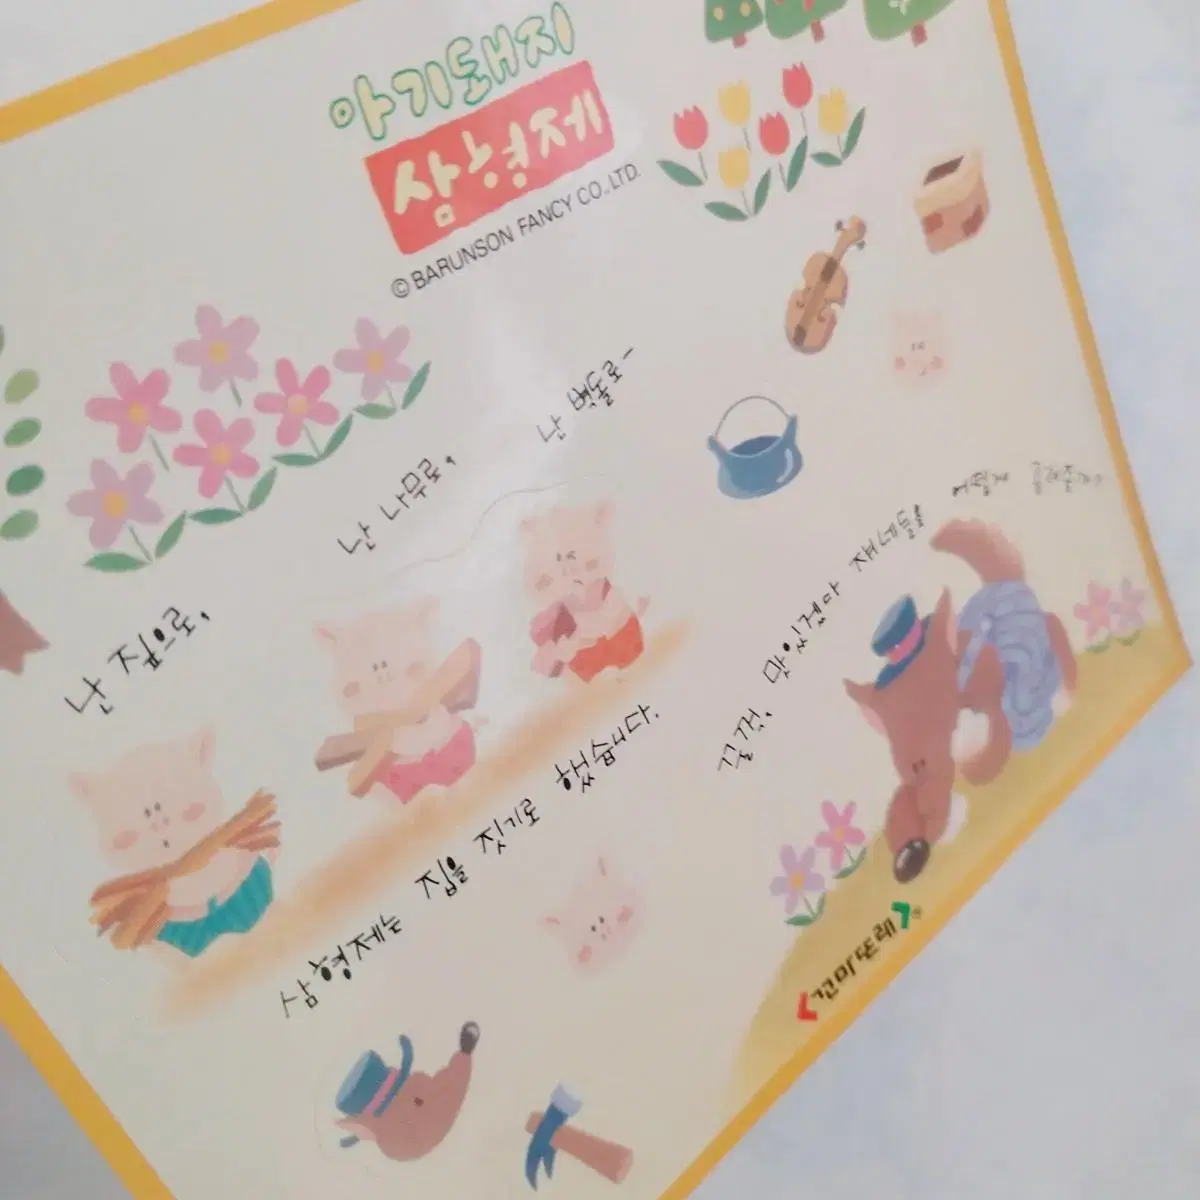 아기돼지
삼형제
© BARUNSON FANCY CO., LTD.
난 짚으로,
난 나무로,
난 벽돌로-
삼형제는 집을 짓기로 했습니다.
꼴깍, 맛있겠다 쟤네들을 어떻게
꼬미또래